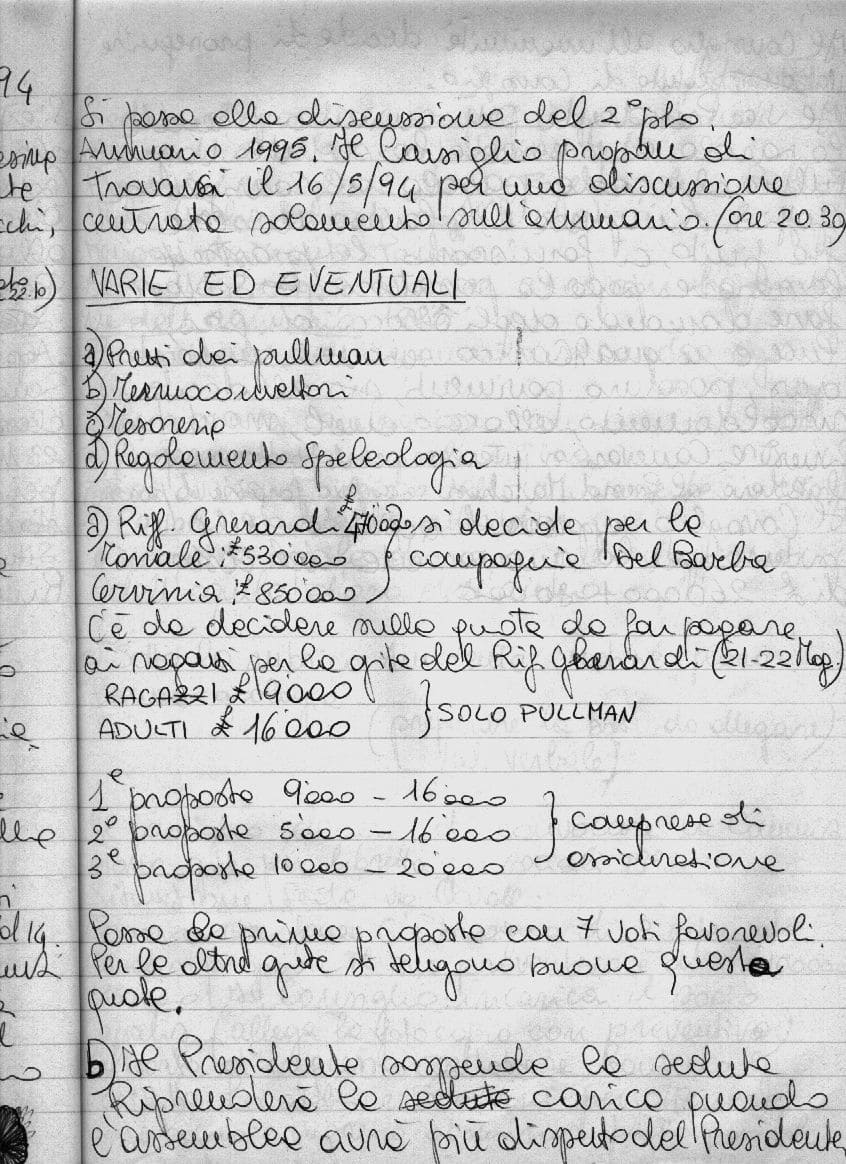 94
Si passa alla discussione del 2° pto.
Annuario 1995. Il Consiglio propone di
trovarsi il 16/5/94 per una discussione
te
centrata solamente sull'annuario. (ore 20.30)
cchi,
22.10)
VARIE ED EVENTUALI
a) Prezzi dei pullman
b) Termoconvettori
c) Tesserip
d) Regolamento Speleologia
a) Rif. Gherardi: £ 470'000 si decide per la
Tonale: £ 530'000 } compagnia Del Barba
Cervinia: £ 850'000
C'è da decidere sulla quota da far pagare
ai ragazzi per la gita del Rif. Gherardi (21-22 Mag.)
RAGAZZI £ 9'000 } SOLO PULLMAN
ADULTI £ 16'000
1ª proposta 9'000 - 16'000 } comprese di
2ª proposta 5'000 - 16'000 assicurazione
3ª proposta 10'000 - 20'000
Passa la prima proposta con 7 voti favorevoli.
Per le altre gite si tengono buone queste
quote.
b) Il Presidente sospende la seduta
Riprenderà la sedute carica quando
l'assemblea avrà più rispetto del Presidente